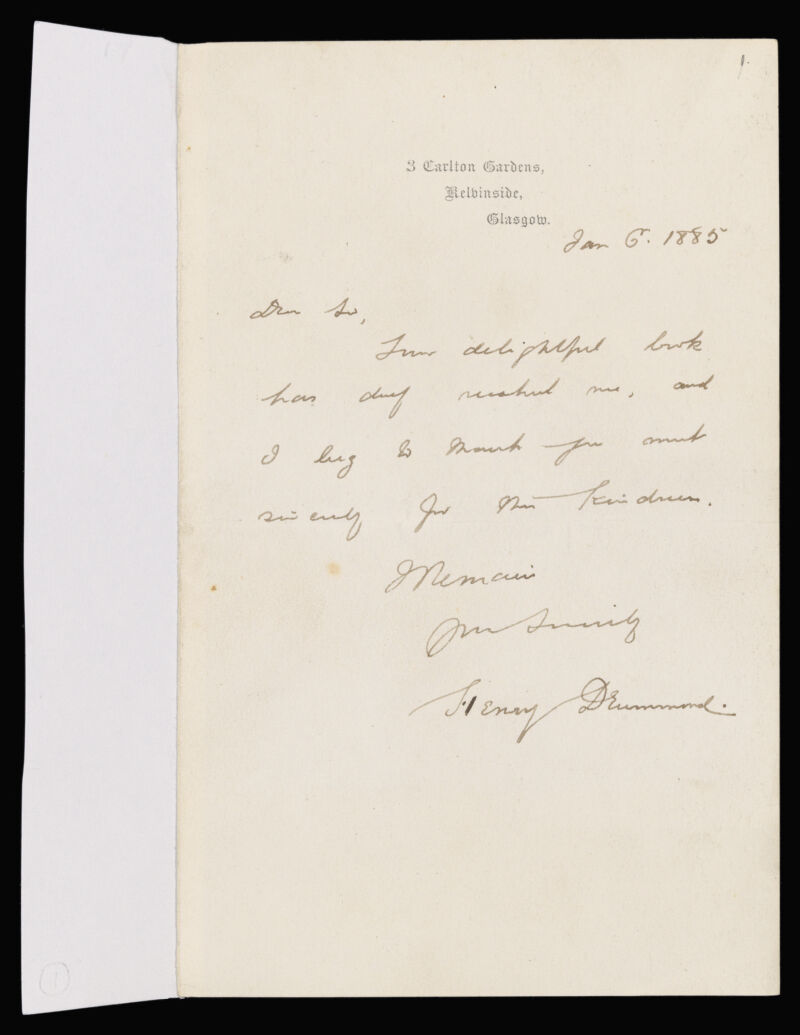 1.
3 Carlton Gardens,
Kelvinside,
Glasgow.
Jan 6. 1885
Dear Sir,
Your delightful book
has duly reached me, and
I beg to thank you most
sincerely for this kindness.
I Remain
Yours Sincerely
Henry Drummond.
1